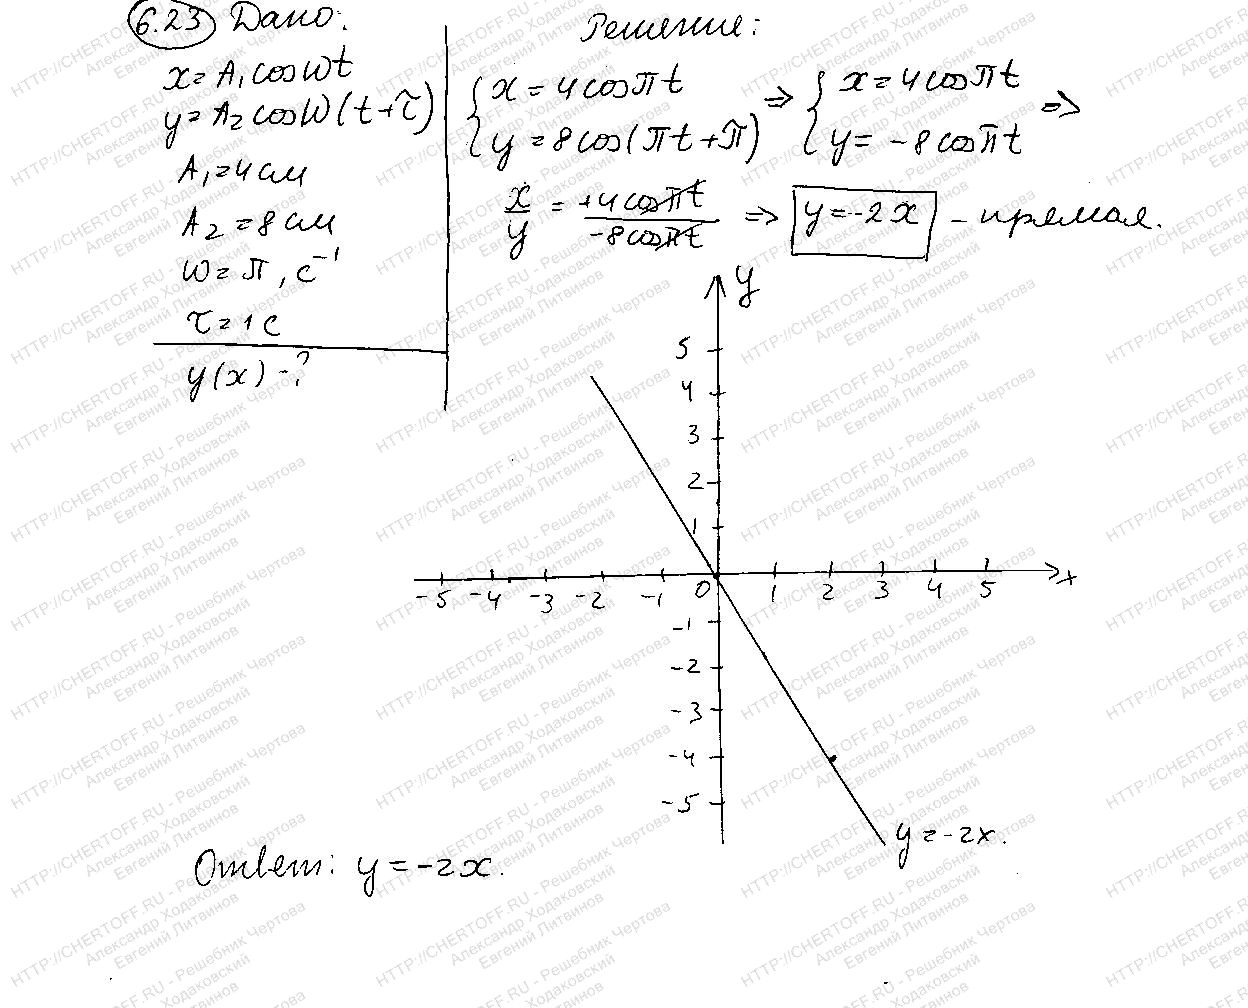 6.23 Дано:
x = A₁ cos ωt
y = A₂ cos ω(t+τ)
A₁ = 4 см
A₂ = 8 см
ω = π, с⁻¹
τ = 1 с
y(x) - ?
Решение:
{ x = 4 cos πt
{ y = 8 cos(πt + π)
⇒ { x = 4 cos πt
{ y = -8 cos πt ⇒
x/y = +4 cos πt / -8 cos πt ⇒ y = -2x - прямая.
y
5
4
3
2
1
-5 -4 -3 -2 -1 0 1 2 3 4 5 x
-1
-2
-3
-4
-5
y = -2x.
Ответ: y = -2x.
HTTP://CHERTOFF.RU - Решебник Чертова
Александр Ходаковский
Евгений Литвинов